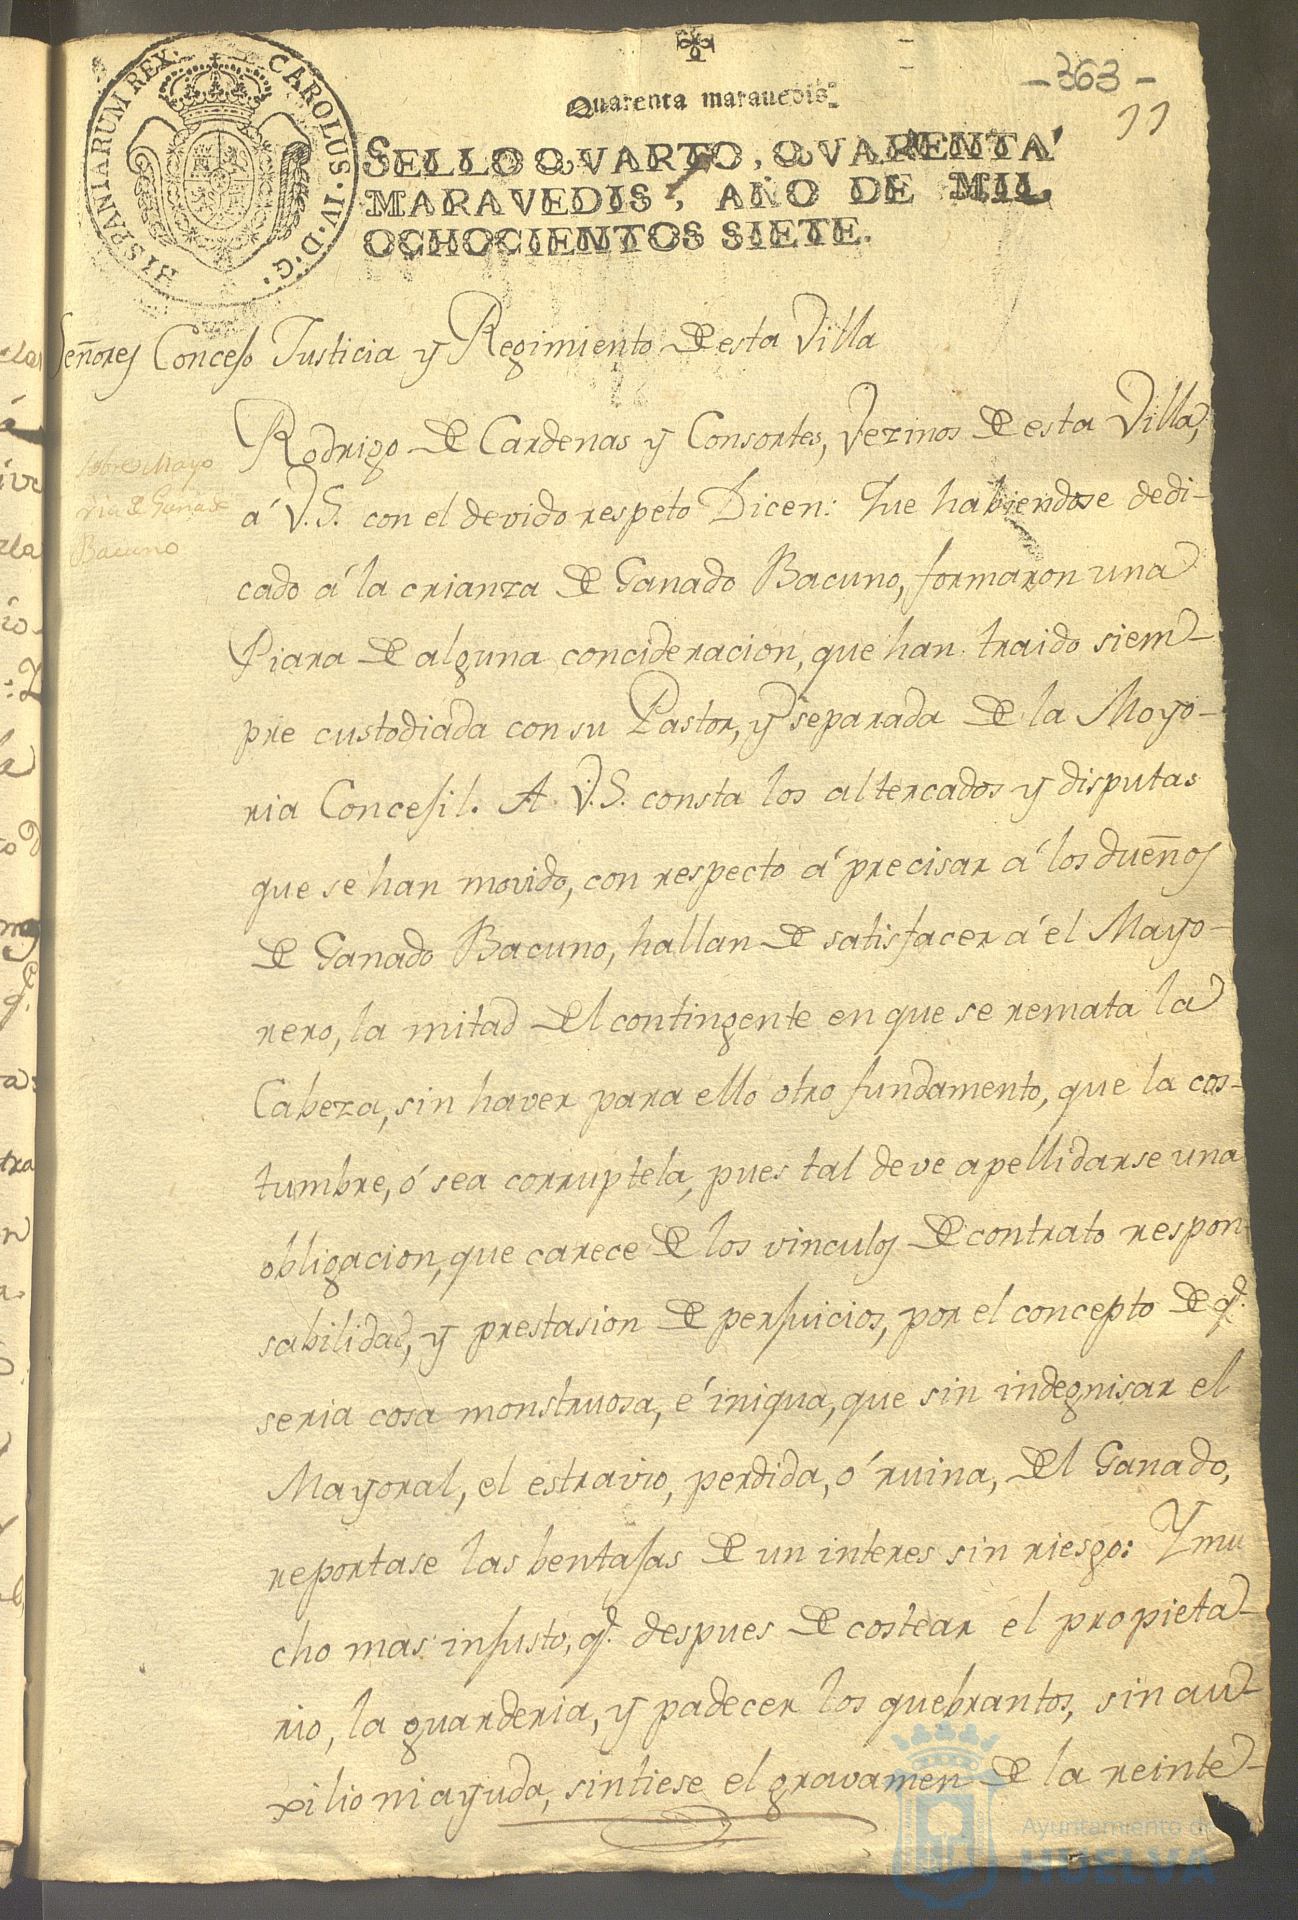 HISPANIARUM REX. CAROLUS·IV·D·G·
-363-
11
Quarenta marauedis.
SELLO QVARTO, QVARENTA
MARAVEDIS, AÑO DE MIL
OCHOCIENTOS SIETE.
Señores Concejo Justicia y Regimiento de esta Villa
sobre Mayo
ria de Ganado
Bacuno
Rodrigo de Cardenas y Consortes, Vezinos de esta Villa,
á V.S. con el devido respeto Dicen: Que habiendose dedi-
cado á la crianza de Ganado Bacuno, formaron una
Piara de alguna concideracion, que han traido siem-
pre custodiada con su Pastor, y separada de la Moyo-
ria Concejil. A V.S. consta los altercados y disputas
que se han movido, con respecto á precisar á los dueños
de Ganado Bacuno, hallan de satisfacer á el Mayo-
rero, la mitad del contingente en que se remata la
Cabeza, sin haver para ello otro fundamento, que la cos-
tumbre, ó sea corruptela, pues tal deve apellidarse una
obligacion, que carece de los vinculos de contrato respon-
sabilidad, y prestasion de perjuicios, por el concepto de q.
seria cosa monstruosa, é iniqua, que sin indegnisar el
Mayoral, el estravio, perdida, ó ruina, del Ganado,
reportase las bentajas de un interes sin riesgo: Y mu
cho mas injusto, q. despues de costear el propieta-
rio, la guarderia, y padecer los quebrantos, sin au-
xilio ni ayuda, sintiese el gravamen de la reinte-
Ayuntamiento de
HUELVA